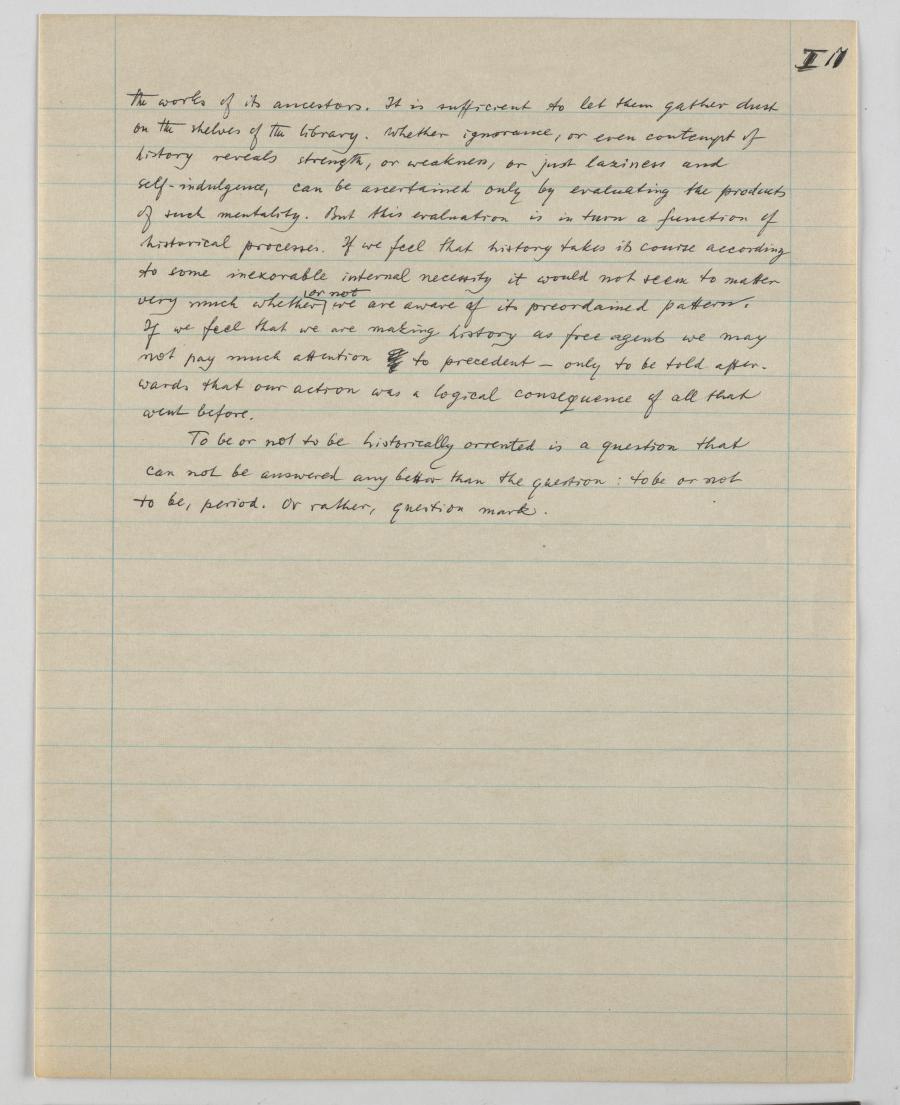 II 17
the works of its ancestors. It is sufficient to let them gather dust
on the shelves of the library. Whether ignorance, or even contempt of
history reveals strength, or weakness, or just laziness and
self-indulgence, can be ascertained only by evaluating the products
of such mentality. But this evaluation is in turn a function of
historical processes. If we feel that history takes its course according
to some inexorable internal necessity it would not seem to matter
or not
very much whether we are aware of its preordained pattern.
If we feel that we are making history as free agents we may
not pay much attention to precedent — only to be told after-
wards that our action was a logical consequence of all that
went before.
To be or not to be historically oriented is a question that
can not be answered any better than the question: to be or not
to be, period. Or rather, question mark.